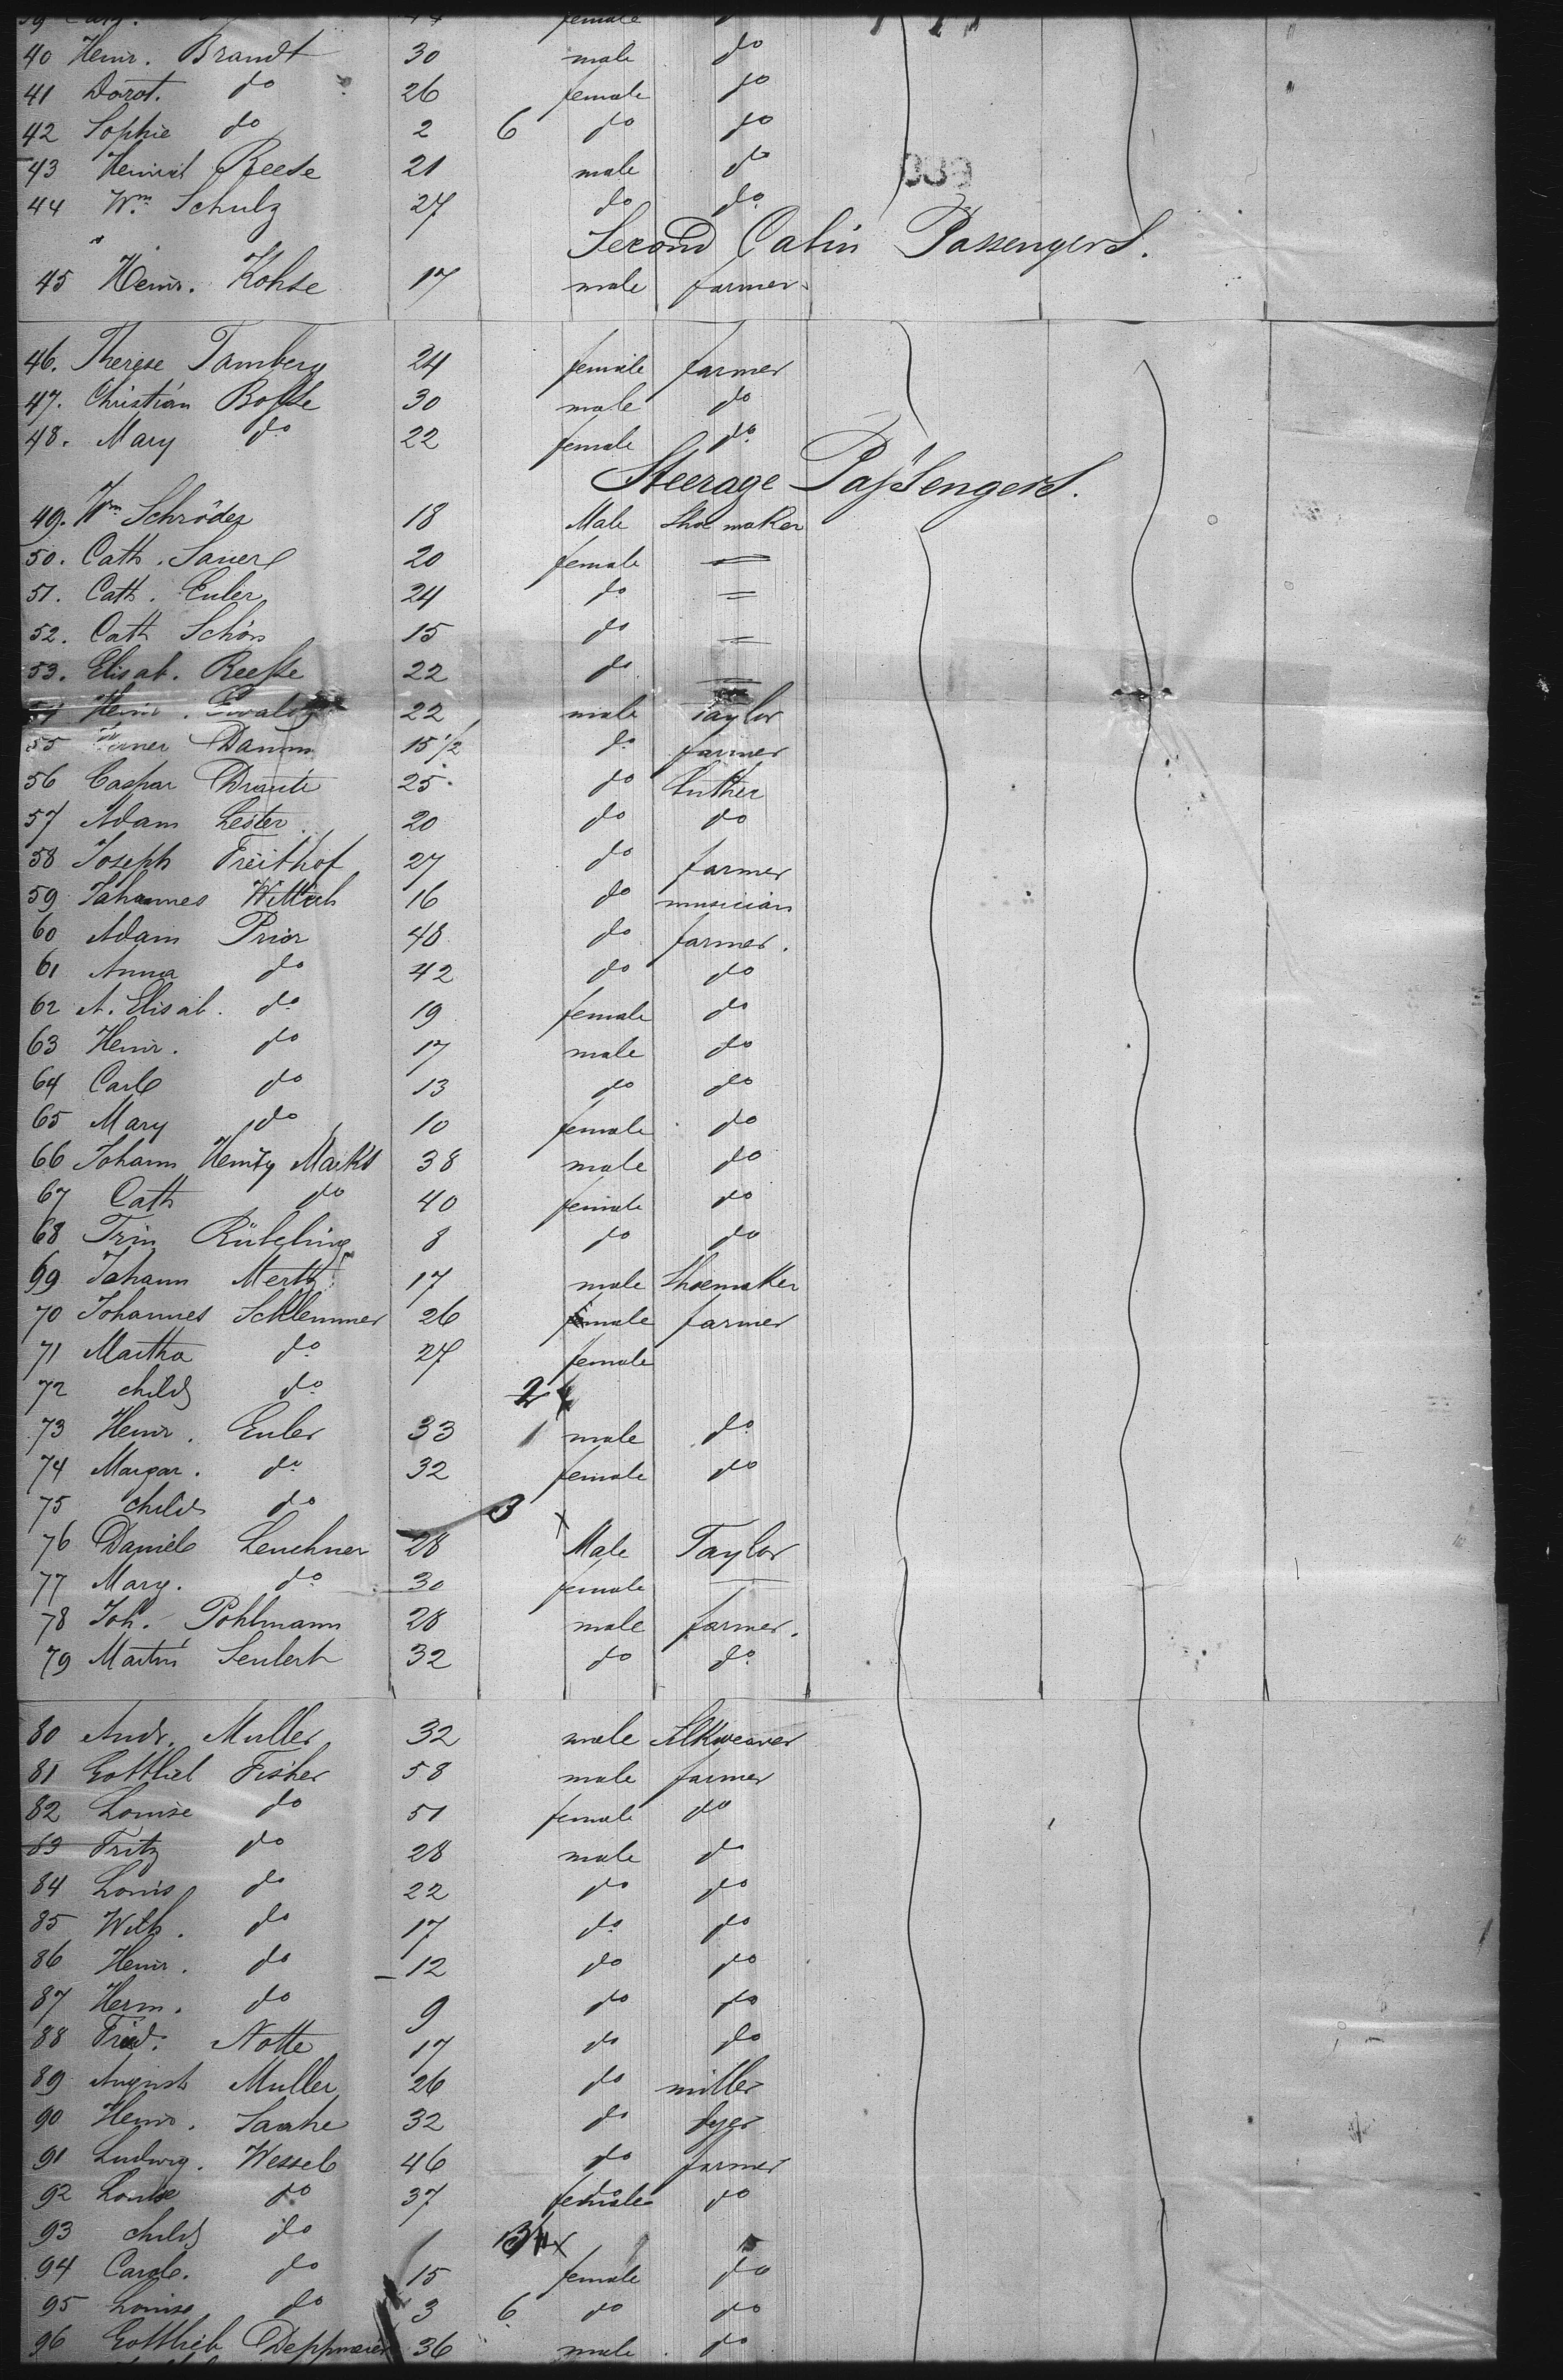 female
40 Heinr. Brandt 30 male do
41 Dorot. do 26 female do
42 Sophie do 2 6 do do
43 Heinrich Reese 21 male do
44 Wm. Schulz 27 do do
Second Cabin Passengers.
45 Heinr. Kohse 17 male farmer
46. Therese Tamberg 24 female farmer
47. Christian Bosse 30 male do
48. Mary do 22 female do
Steerage Passengers.
49. Wm Schröder 18 Male Shoe maker
50. Cath. Sauer 20 female =
51. Cath. Euler 24 do =
52. Cath Schön 15 do =
53. Elisab. Reesse 22 do =
54 Heinr. 22 male Taylor
55 Damm 15 1/2 do farmer
56 Caspar Draute 25 do Cuther
57 Adam Lester 20 do do
58 Joseph Freithof 27 do farmer
59 Johannes Wittich 16 do musician
60 Adam Prior 48 do farmer.
61 Anna do 42 do do
62 A. Elisab. do 19 female do
63 Heinr. do 17 male do
64 Carl do 13 do do
65 Mary do 10 female do
66 Johann Henry Marks 38 male do
67 Cath do 40 female do
68 Trin Rübeling 8 do do
69 Johann Mertz 17 male Shoemaker
70 Johannes Schlemmer 26 male farmer
71 Martha do 27 female
72 child do 2
73 Heinr. Euler 33 male do
74 Margar. do 32 female do
75 child do 3 x
76 Daniel Leuchner 28 Male Taylor
77 Mary. do 30 female —
78 Joh. Pohlmann 28 male farmer.
79 Martin Seulert 32 do do
80 Andr. Muller 32 male Silkweaver
81 Gottlieb Fisher 58 male farmer
82 Louise do 51 female do
83 Fritz do 28 male do
84 Louis do 22 do do
85 Wilh. do 17 do do
86 Heinr. do 12 do do
87 Herm. do 9 do do
88 Fried. Notte 17 do do
89 August Muller 26 do miller
90 Heinr. Saake 32 do dyer
91 Ludwig. Wessel 46 do farmer
92 Louise do 37 female do
93 child do
94 Carol. do 15 female do
95 Louise do 3 6 do do
96 Gottlieb Deppmeier 36 male do